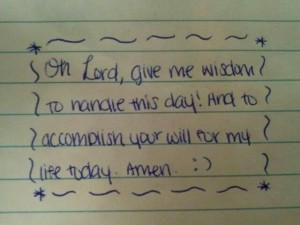 Oh Lord, give me wisdom
to handle this day! And to
accomplish your will for my
life today. Amen. :)